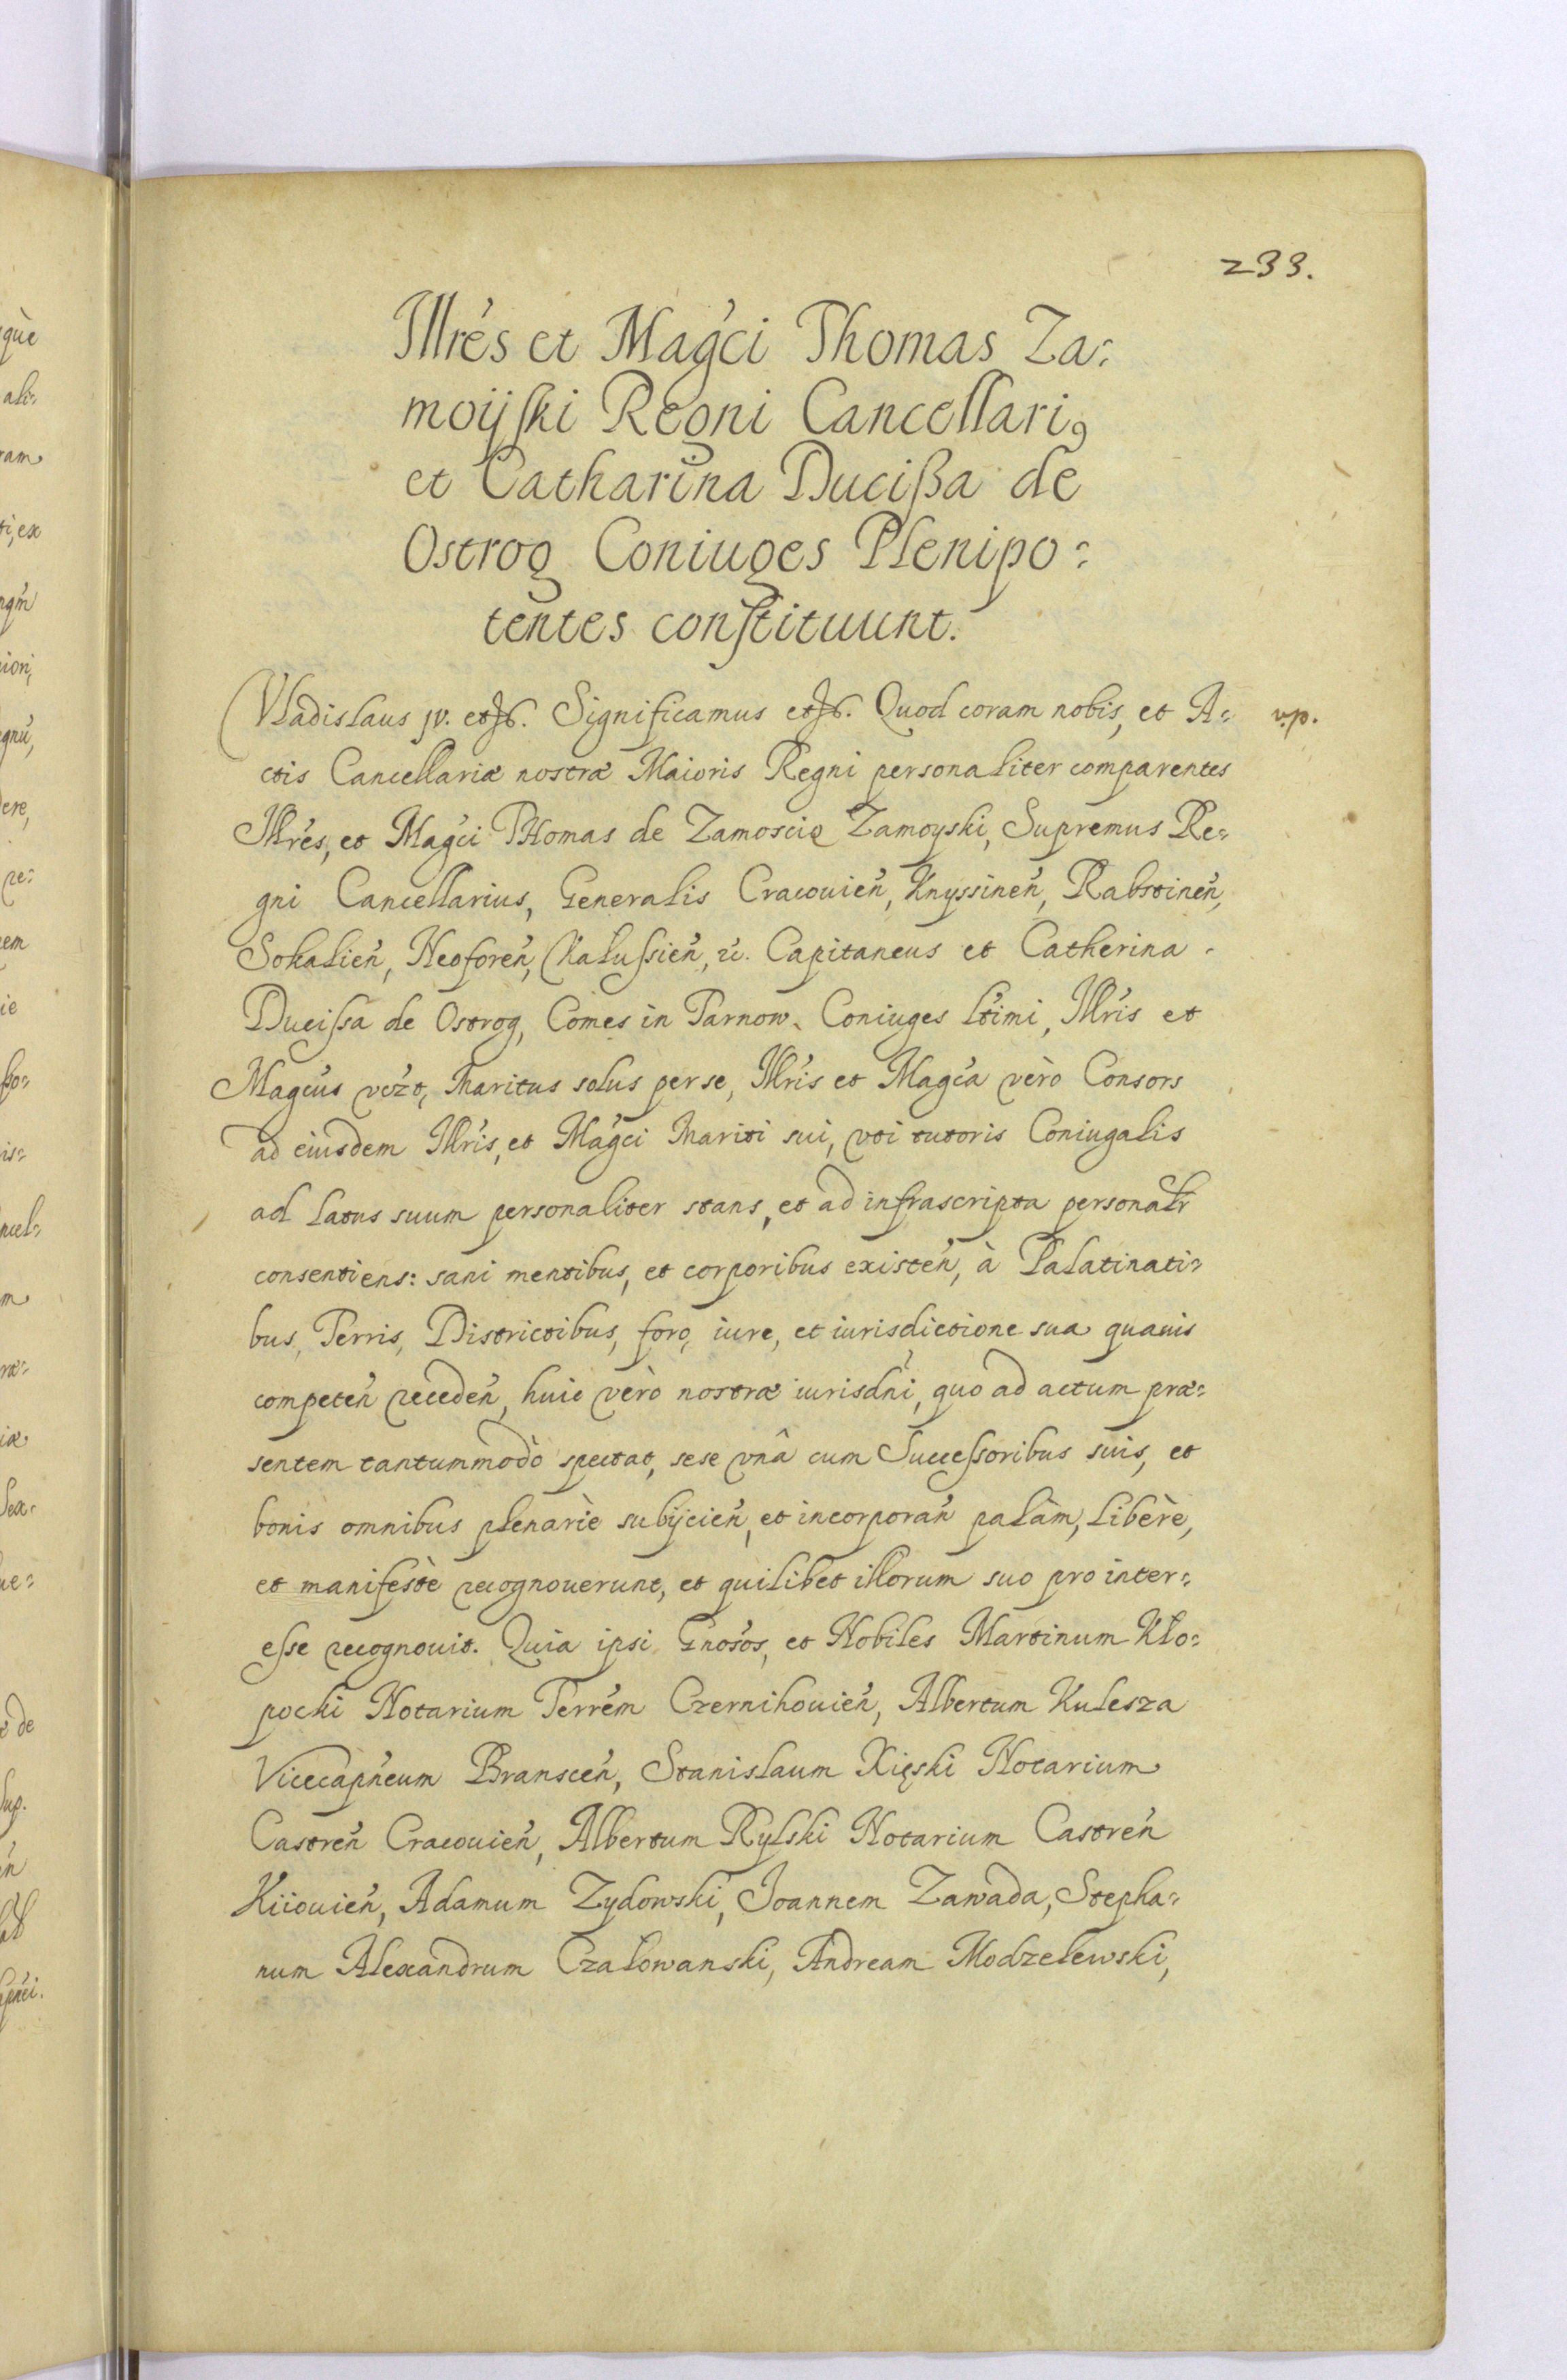 233.
Illrés et Magći Thomas Za=
moijski Regni Cancellariꝰ
et Catharina Ducißa de
Ostrog Coniuges Plenipo=
tentes constituunt.
Vladislaus jv. etc. Significamus etc. Quod coram nobis, et A= v.p.
ctis Cancellariæ nostræ Maioris Regni personaliter comparentes
Illrés, et Magći Thomas de Zamoscie Zamoyski, Supremus Re=
gni Cancellarius, Generalis Cracouień, Knyssinéń, Rabstinéń,
Sokalień, Neoforéń, Kalussień, etc. Capitaneus et Catherina
Ducissa de Ostrog, Comes in Tarnow. Coniuges ltimi, Illris et
Magcús Maritus solus per se, Illrís et Magcá vèrò Consors
ad eiusdem Illrís, et Mágci Mariti sui, vti tutoris Coniugalis
ad latus suum personaliter stans, et ad infrascripta personalr
consentiens: sani mentibus, et corporibus existéń, à Palatinati=
bus, Terris, Districtibus, foro, iure, et iurisdictione sua quauis
competéń recedéń, huic vèrò nostræ iurisdńi, quo ad actum præ=
sentem tantummodò spectat, sese vnâ cum Successoribus suis, et
bonis omnibus plenariè subijcień, et incorporań palàm, liberè,
et manifestè recognouerunt, et quilibet illorum suo pro inter=
esse recognouit. Quia ipsi Gnosós, et Nobiles Martinum Kło=
pocki Notarium Terrém Czernihouień, Albertum Kulesza
Vicecapńeum Branscéń, Stanislaum Xięski Notarium
Castréń Cracouień, Albertum Rylski Notarium Castréń
Kiiouień, Adamum Zydowski, Joannem Zawada, Stepha=
num Alexandrum Czałowanski, Andream Modzelewski,